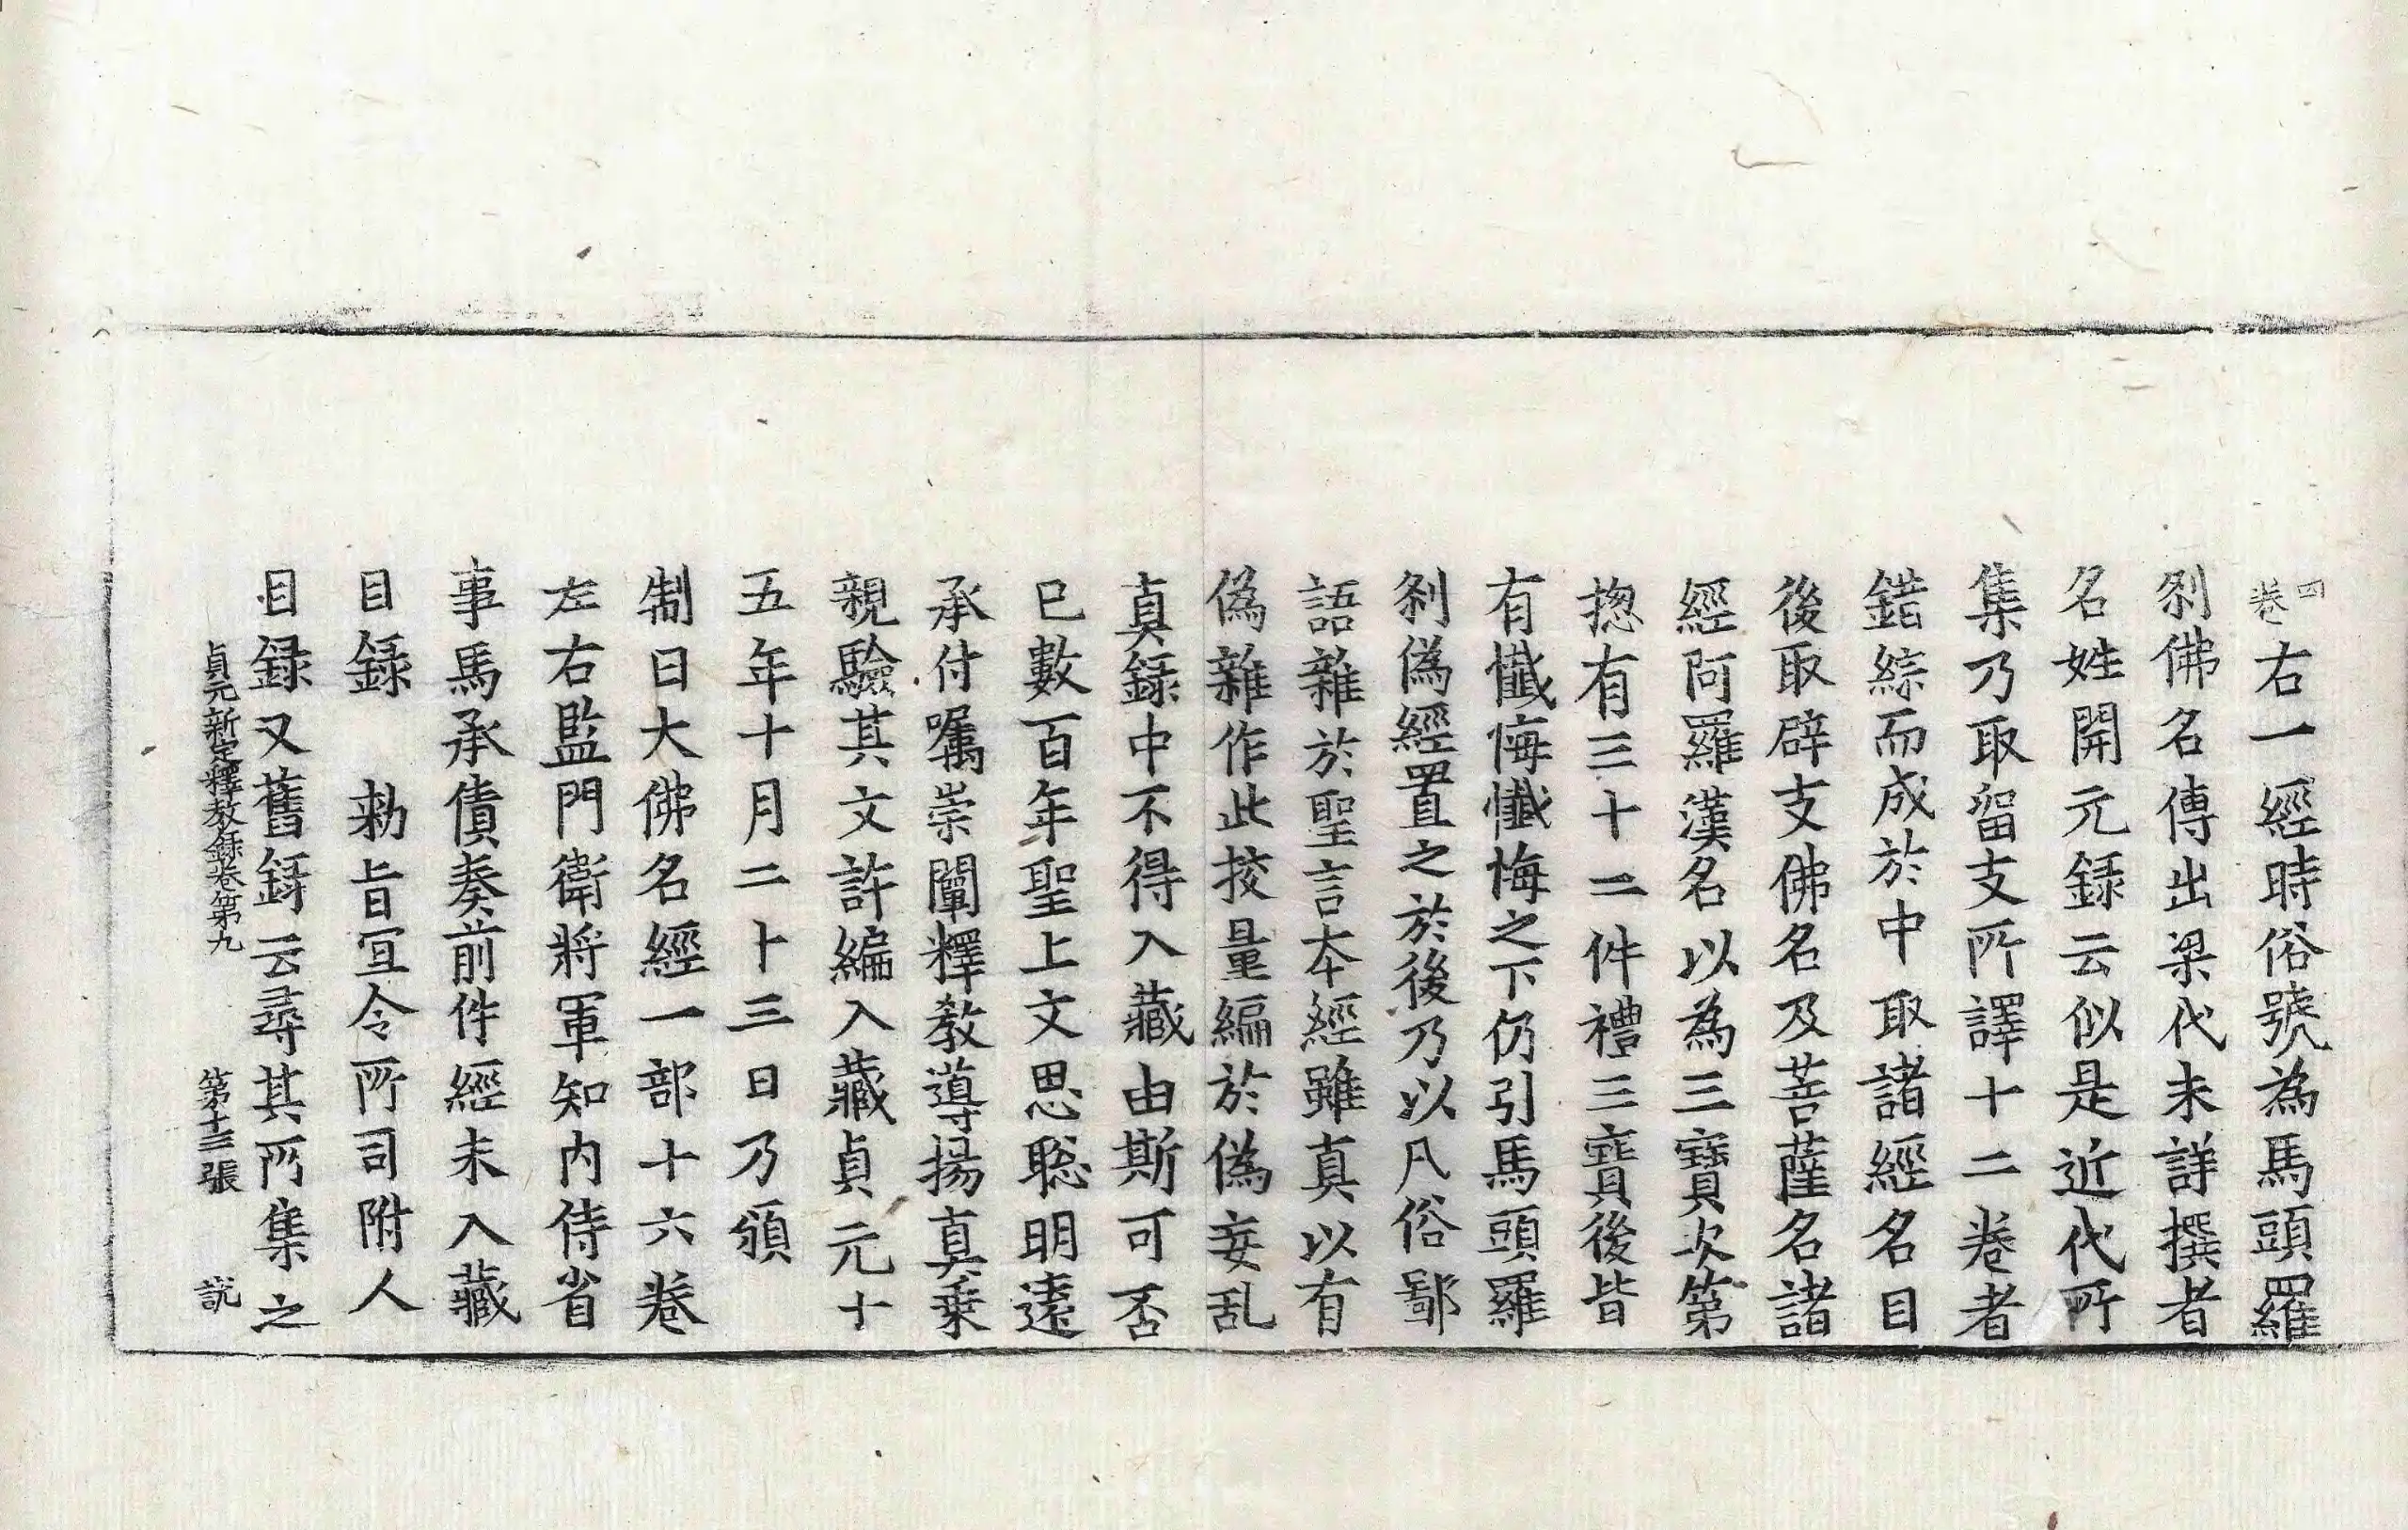 四
卷
右一經時俗號為馬頭羅
刹佛名傳出梁代未詳撰者
名姓開元録云似是近代所
集乃取留支所譯十二卷者
錯綜而成於中取諸經名目
後取辟支佛名及菩薩名諸
經阿羅漢名以為三寶次第
揔有三十二件禮三寶後皆
有懺悔懺悔之下仍引馬頭羅
刹偽經置之於後乃以凡俗鄙
語雜於聖言本經雖真以有
偽雜作此挍量編於偽妄乱
真録中不得入藏由斯可否
已數百年聖上文思聡明遠
承付囑崇闡釋教導揚真乗
親驗其文許編入藏貞元十
五年十月二十三日乃頒
制曰大佛名經一部十六卷
左右監門衛將軍知内侍省
事馬承倩奏前件經未入藏
目録　勅旨冝令所司附入
目録又舊録云尋其所集之
貞元新定釋教録卷第九　第十三張　説